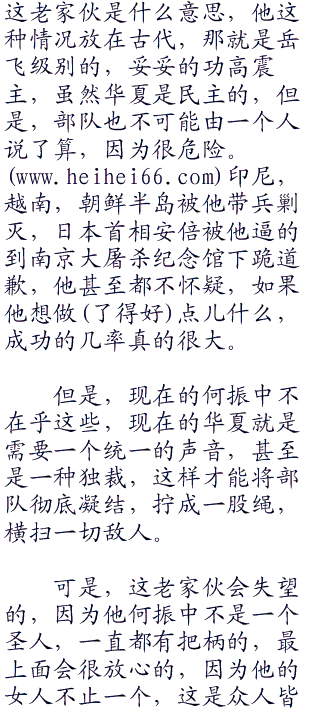 这老家伙是什么意思，他这
种情况放在古代，那就是岳
飞级别的，妥妥的功高震
主，虽然华夏是民主的，但
是，部队也不可能由一个人
说了算，因为很危险。
(www.heihei66.com)印尼，
越南，朝鲜半岛被他带兵剿
灭，日本首相安倍被他逼的
到南京大屠杀纪念馆下跪道
歉，他甚至都不怀疑，如果
他想做(了得好)点儿什么，
成功的几率真的很大。
但是，现在的何振中不
在乎这些，现在的华夏就是
需要一个统一的声音，甚至
是一种独裁，这样才能将部
队彻底凝结，拧成一股绳，
横扫一切敌人。
可是，这老家伙会失望
的，因为他何振中不是一个
圣人，一直都有把柄的，最
上面会很放心的，因为他的
女人不止一个，这是众人皆